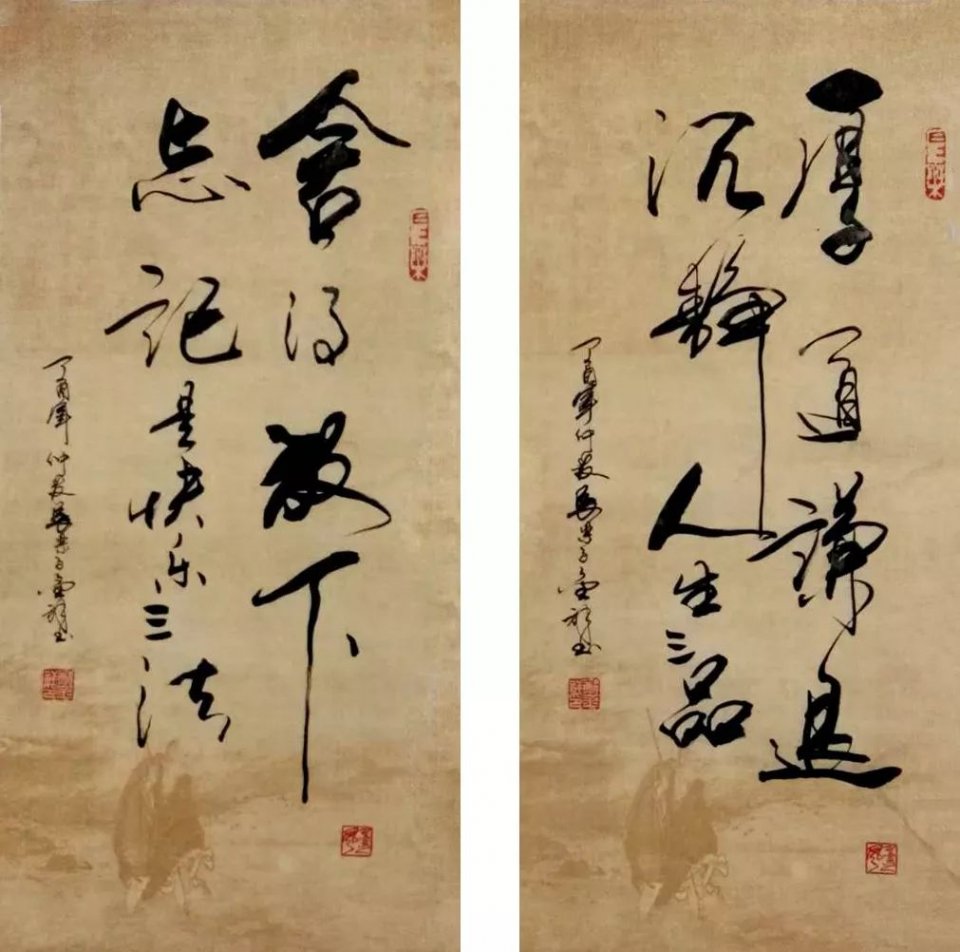 厚道謙退
沉靜人生三品
丁酉年仲夏
舍得放下
忘記是快乐三法
丁酉年仲夏